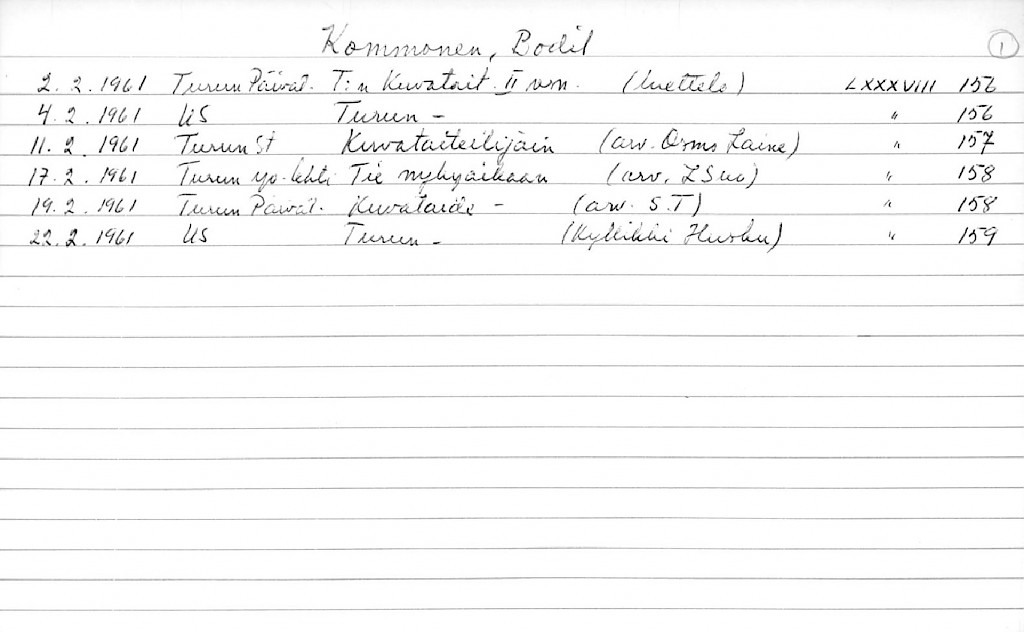 Kommonen, Bodil 1
2.2.1961 Turun Päivät. T:n Kuvatait. II vsn. (luettelo) LXXXVIII 156
4.2.1961 US Turun - " 156
11.2.1961 Turun St Kuvataiteilijain (arv. Osmo Laine) " 157
17.2.1961 Turun yo-lehti Tie nykyaikaan (arv. " 158
19.2.1961 Turun Päivät. Kuvataide - (arv. S.T) " 158
22.2.1961 US Turun - (Kyllikki " 159